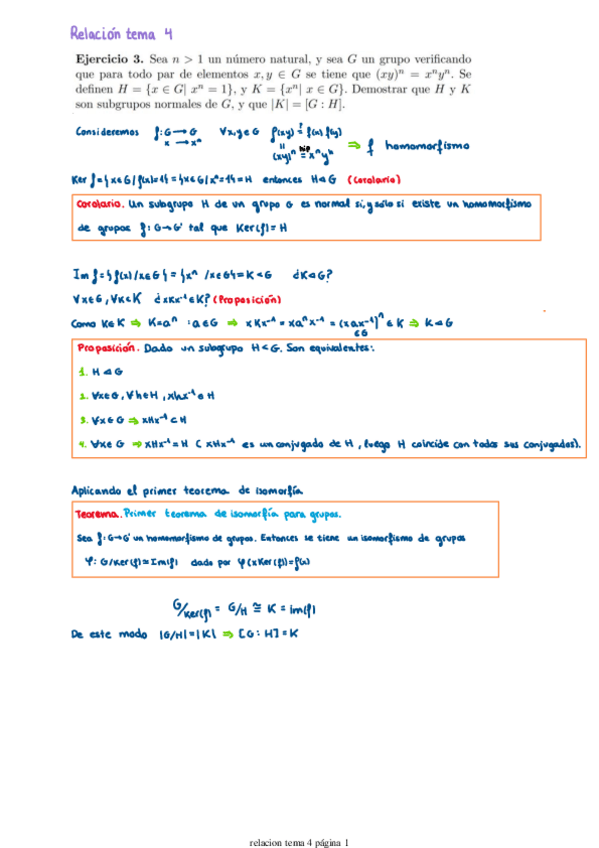 Relación tema 4
Ejercicio 3. Sea n > 1 un número natural, y sea G un grupo verificando
que para todo par de elementos x, y ∈ G se tiene que (xy)ⁿ = xⁿyⁿ. Se
definen H = {x ∈ G| xⁿ = 1}, y K = {xⁿ| x ∈ G}. Demostrar que H y K
son subgrupos normales de G, y que |K| = [G : H].
Consideremos f: G → G ∀x,y ∈ G f(xy) ≟ f(x) f(y)
x → xⁿ (xy)ⁿ = xⁿyⁿ ⇒ f homomorfismo
hip
Ker f = {x∈G / f(x)=1} = {x∈G / xⁿ=1} = H entonces H◁G (Corolario)
Corolario. Un subgrupo H de un grupo G es normal si, y sólo si existe un homomorfismo
de grupos f: G→G' tal que Ker(f) = H
Im f = {f(x) / x∈G} = {xⁿ / x∈G} = K < G ¿K◁G?
∀x∈G, ∀k∈K ¿xkx⁻¹∈K? (Proposición)
Como k∈K ⇒ k=aⁿ : a∈G ⇒ xkx⁻¹ = xaⁿx⁻¹ = (xax⁻¹)ⁿ ∈ K ⇒ K◁G
∈G
Proposición. Dado un subgrupo H<G. Son equivalentes:
1. H◁G
2. ∀x∈G, ∀h∈H, xhx⁻¹∈H
3. ∀x∈G ⇒ xHx⁻¹⊂H
4. ∀x∈G ⇒ xHx⁻¹=H ( xHx⁻¹ es un conjugado de H, luego H coincide con todos sus conjugados).
Aplicando el primer teorema de isomorfía
Teorema. Primer teorema de isomorfía para grupos.
Sea f: G→G' un homomorfismo de grupos. Entonces se tiene un isomorfismo de grupos
φ: G/Ker(f) ≃ Im(f) dado por φ(xKer(f)) = f(x)
G/Ker(f) = G/H ≅ K = im(f)
De este modo |G/H| = |K| ⇒ [G : H] = K
relacion tema 4 página 1